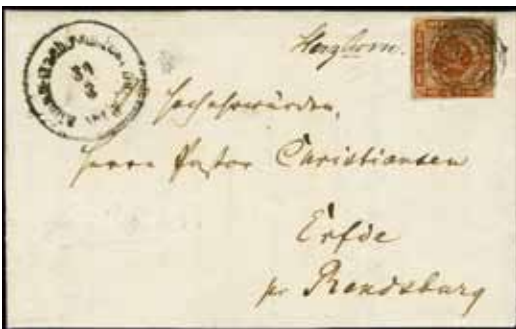 Herzhorn.
Hochehrwürden,
Herrn Pastor Christiansen
Erfde
pr Rendsburg